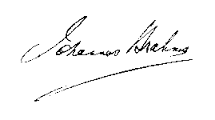 Johannes Brahms